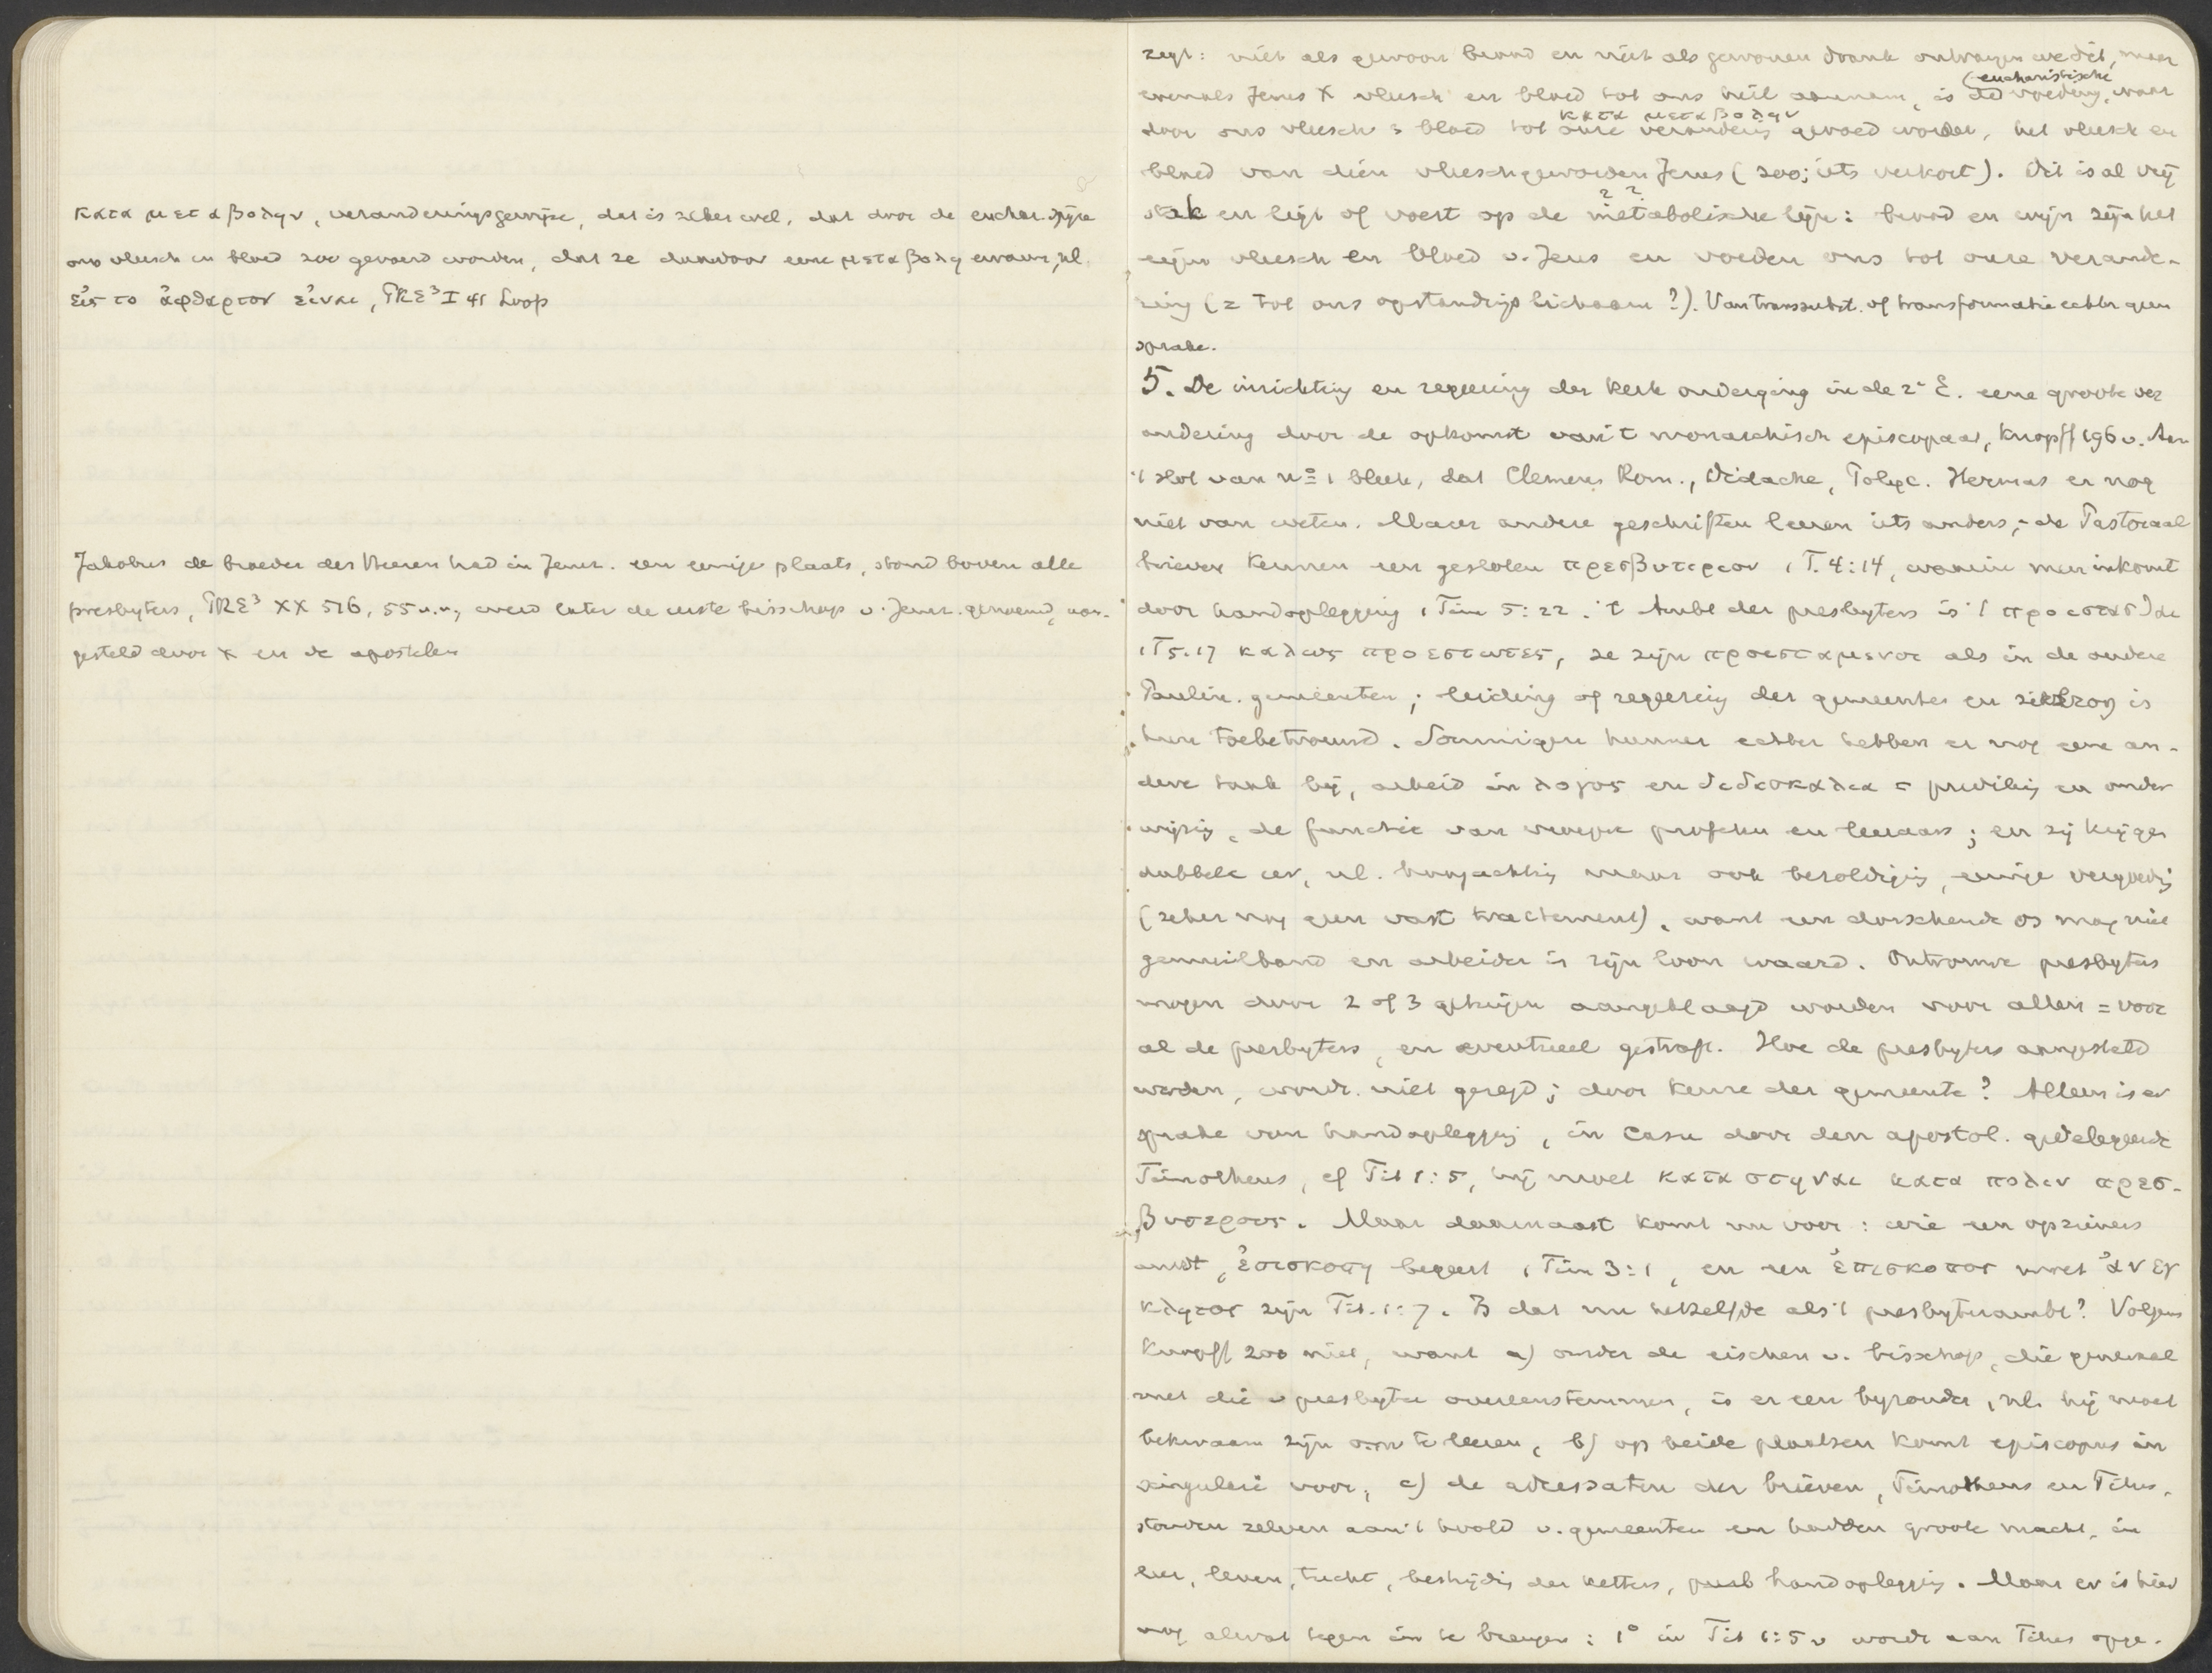 κατα μεταβολην, veranderingsgewijze, dat is zeker wel, dat door de euchar. spijze
ons vleesch en bloed zoo gevoed worden, dat ze daardoor eene μεταβολη ervaren, nl.
εἰς το ἀφθαρτον εἰναι, PRE³ I 41 Loofs
Jakobus de broeder des Heeren had in Jeruz. een eenige plaats, stond boven alle
presbyters, PRE³ XX 516, 55 v.v., werd later de eerste bisschop v. Jeruz. genoemd, aan-
gesteld door X en de apostelen
zegt: niet als gewoon brood en niet als gewonen drank ontvangen we dit, maar
evenals Jezus X vleesch en bloed tot ons heil aannam, is de (eucharistische voeding, waar
door ons vleesch & bloed tot onze verandering κατα μεταβολην gevoed worden, het vleesch en
bloed van dien vleeschgeworden Jezus (200; iets verkort). Dit is al vrij
sterk en ligt of voert op de metabolische lijn: brood en wijn zijn het
eigen vleesch en bloed v. Jezus en voeden ons tot onze verande-
ring (= tot ons opstandings lichaam?). Van transsubst. of transformatie echter geen
sprake.
5. De inrichting en regeering der kerk onderging in de 2e E. eene groote ver
andering door de opkomst van 't monarchisch episcopaat, Knopff 196 v. Aan
't slot van no 1 bleek, dat Clemens Rom., Didache, Polyc. Hermas er nog
niet van weten. Maar andere geschriften leeren iets anders; de Pastoraal
brieven kennen een gesloten πρεσβυτεριον 1 T. 4:14, waarin men inkomt
door handoplegging 1 Tim 5:22. 't Ambt der presbyters is 't προιστασθαι
1 T 5.17 καλως προεστωτες, ze zijn προισταμενοι als in de andere
Paulin. gemeenten; leiding of regeering der gemeentes en zielzorg is
hun toebetrouwd. Sommigen hunner echter hebben er nog eene an-
dere taak bij, arbeid in λογος en διδασκαλια = prediking en onder
wijzing, de functie van vroegere profeten en leeraars; en zij krijgen
dubbele eer, nl. hoogachting maar ook bezoldiging, eenige vergoeding
(zeker nog geen vast tractement), want een dorschende os mag niet
gemuilband en arbeider is zijn loon waard. Ontrouwe presbyters
mogen door 2 of 3 getuigen aangeklaagd worden voor allen = voor
al de presbyters, en eventueel gestraft. Hoe de presbyters aangesteld
werden, wordt niet gezegd; door keuze der gemeente? Alleen is er
sprake van handoplegging, in casu door den apostol. gedelegeerde
Timotheus, cf Tit 1:5, hij moet καταστηναι κατα πολιν πρεσ-
βυτερους. Maar daarnaast komt nu voor: wie een opzieners
ambt, ἐπισκοπη begeert 1 Tim 3:1, en een ἐπισκοπος moet ἀνεγ
κλητος zijn Tit. 1:7. Is dat nu hetzelfde als 't presbyterambt? Volgens
Knopff 200 niet, want a) onder de eischen v. bisschop, die geheel
met die v presbyter overeenstemmen, is er een byzonder, nl. hij moet
bekwaam zijn om te leeren, b) op beide plaatsen komt episcopus in
singulari voor, c) de adressaten der brieven, Timotheus en Titus,
stonden zelven aan 't hoofd v. gemeenten en hadden groote macht, in
leer, leven, tucht, bestrijding der ketters, handoplegging. Maar er is hier
nog alwat tegen in te brengen: 1° in Tit 1:5 v wordt aan Titus opge-